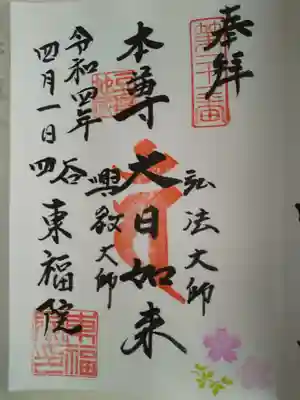 奉拝
弘法大師
本尊 大日如来
興教大師
令和四年
四月一日
四谷 東福院